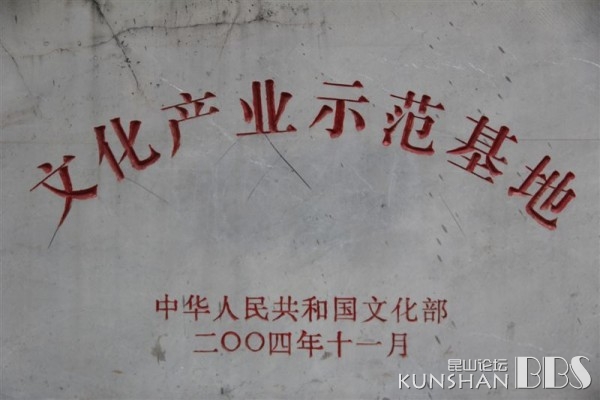 文化产业示范基地
中华人民共和国文化部
二〇〇四年十一月
昆山论坛
KUNSHAN BBS